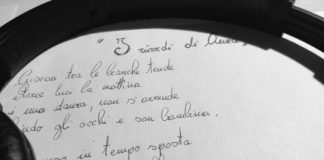 " I ricordi di
Giocan tra le bianche tende
eteree luci la mattina
è una danza, non si arrende
gli occhi e son bambina.
un tempo sposta